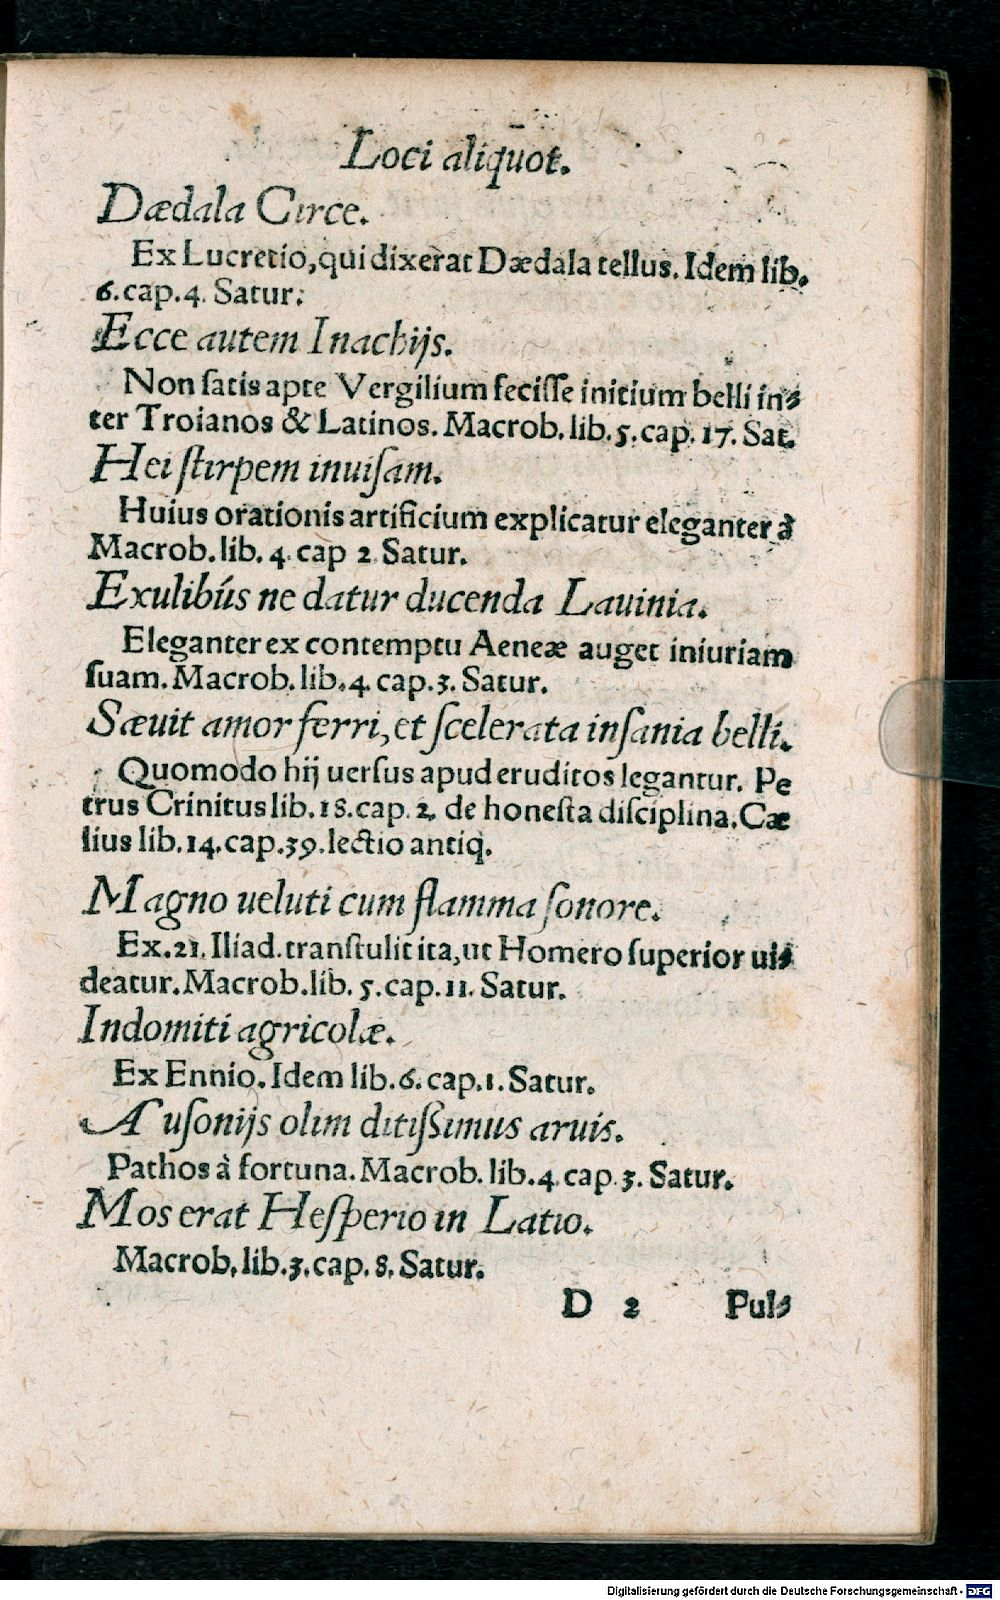 Loci aliquot.
Dædala Circe.
Ex Lucretio, qui dixerat Dædala tellus. Idem lib.
6. cap. 4. Satur.
Ecce autem Inachijs.
Non ſatis apte Vergilium feciſſe initium belli in-
ter Troianos & Latinos. Macrob. lib. 5. cap. 17. Sat.
Hei ſtirpem inuiſam.
Huius orationis artificium explicatur eleganter à
Macrob. lib. 4. cap 2 Satur.
Exulibús ne datur ducenda Lauinia.
Eleganter ex contemptu Aeneæ auget iniuriam
ſuam. Macrob. lib. 4. cap. 3. Satur.
Sæuit amor ferri, et ſcelerata inſania belli.
Quomodo hij uerſus apud eruditos legantur. Pe
trus Crinitus lib. 18. cap. 2. de honeſta diſciplina. Cæ
lius lib. 14. cap. 39. lectio antiq.
Magno ueluti cum flamma ſonore.
Ex. 21. Iliad. tranſtulit ita, ut Homero ſuperior ui-
deatur. Macrob. lib. 5. cap. 11. Satur.
Indomiti agricolæ.
Ex Ennio. Idem lib. 6. cap. 1. Satur.
Auſonijs olim ditiſsimus aruis.
Pathos à fortuna. Macrob. lib. 4. cap. 3. Satur.
Mos erat Heſperio in Latio.
Macrob. lib. 3. cap. 8. Satur.
D 2 Pul-
Digitalisierung gefördert durch die Deutsche Forschungsgemeinschaft - DFG